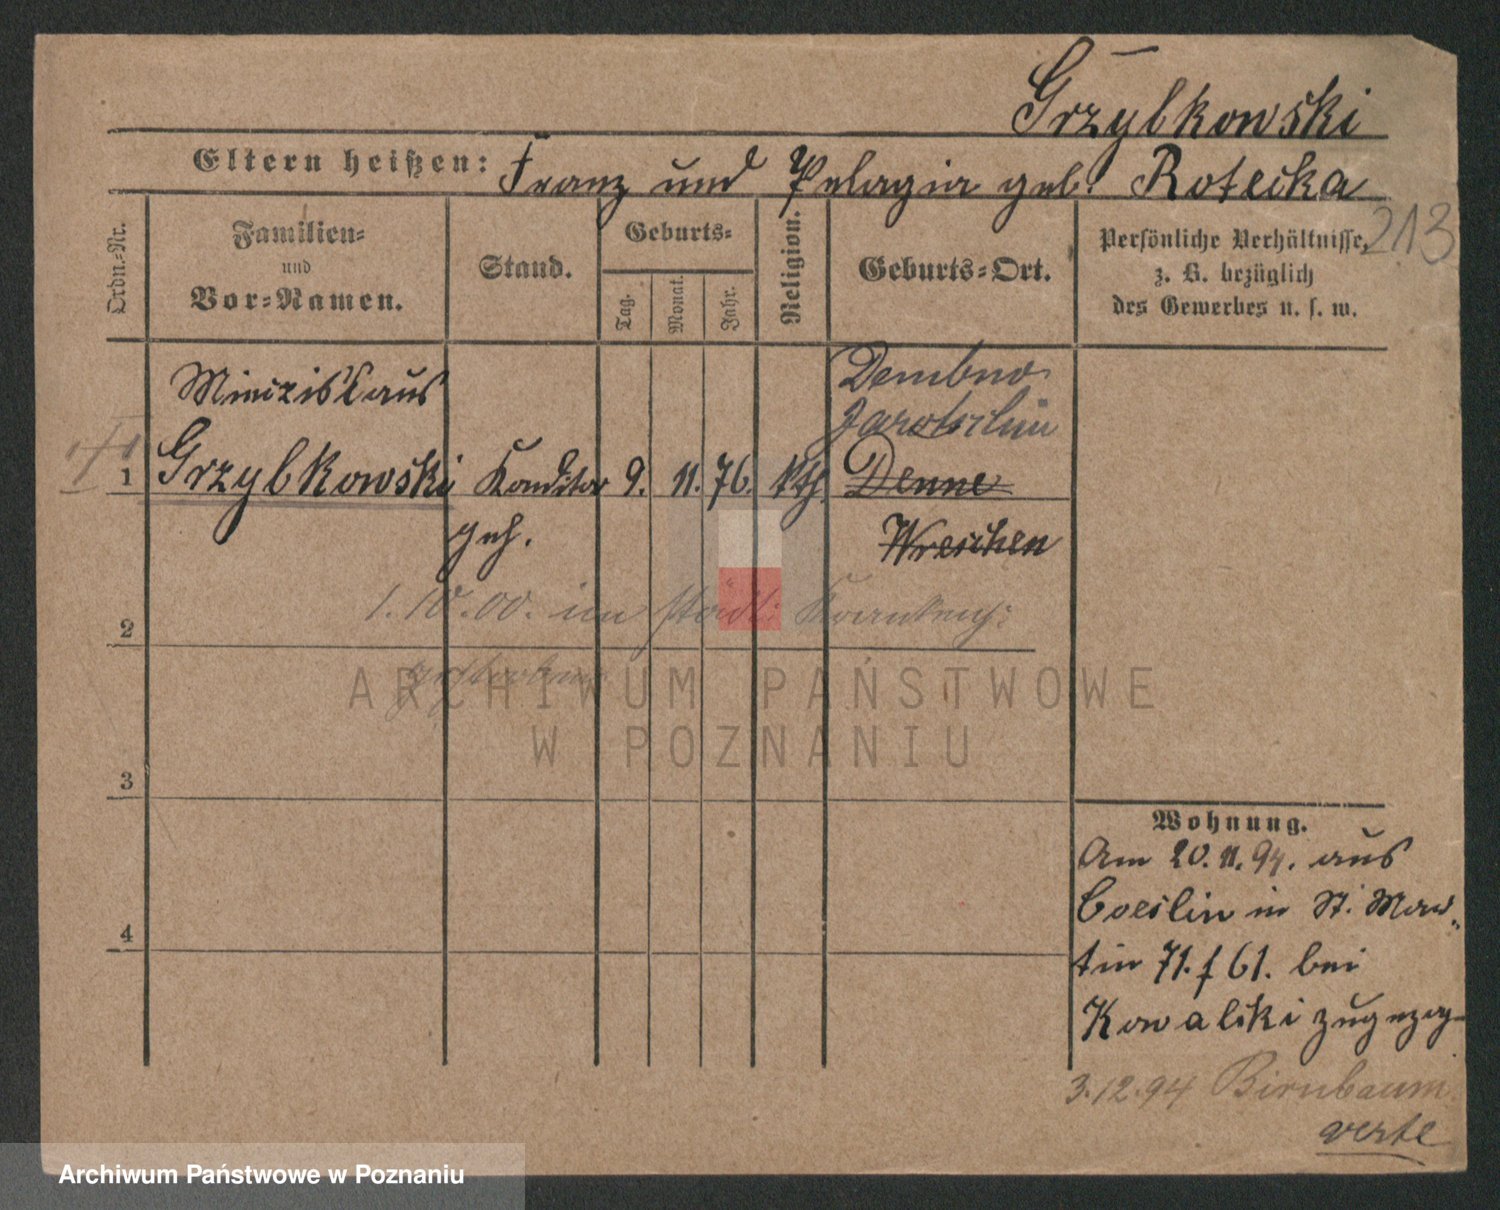 Grzybkowski
Eltern heißen: Franz und Pelagia geb. Rotecka
213
Ordn.-Nr.
Familien-
und
Vor-Namen.
Stand.
Geburts-
Tag.
Monat.
Jahr.
Religion.
Geburts-Ort.
Persönliche Verhältnisse,
z. B. bezüglich
des Gewerbes u. s. w.
Mieczislaus
Dembno
Jarotschin
1 Grzybkowski Konditor 9. 11. 76. kth. Denne
geh.
Wreschen
1.10.00. im städt. Krankenh:
2
gestorben
ARCHIWUM PAŃSTWOWE
W POZNANIU
3
4
Wohnung.
Am 20.11.94. aus
Coeslin in St. Mar-
tin 71. f 61. bei
Kowalski zugezog
3.12.94 Birnbaum
verte
Archiwum Państwowe w Poznaniu